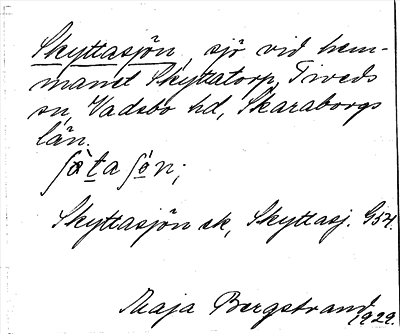 Skyttasjön, sjö vid hem-
manet Skyttatorp, Tiveds
sn, Vadsbo hd, Skaraborgs
län.
ʃø̀ta ʃö́n;
Skyttasjön ek, Skyttasj. G54.
Maja Bergstrand
1929.